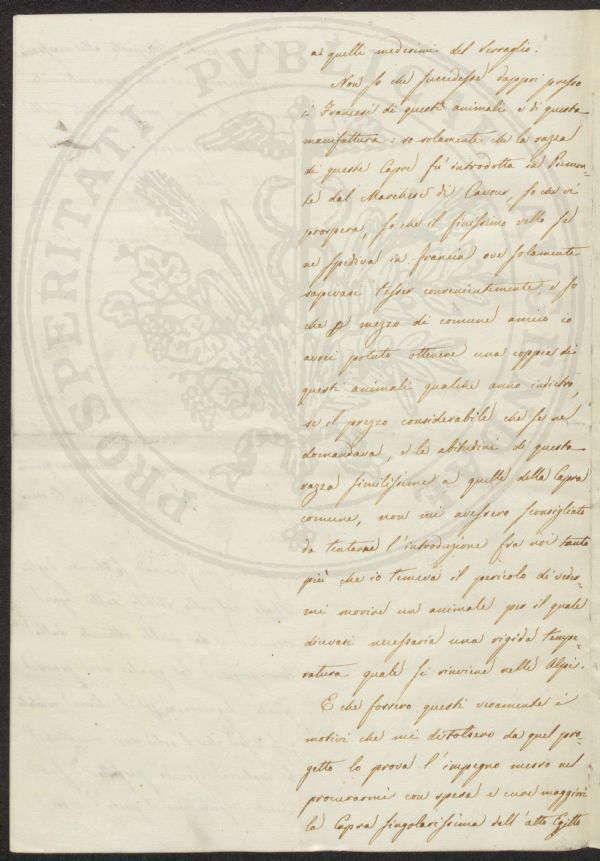 a quelli medesimi del Serraglio.
Non so che succedesse dappoi presso
i Francesi di questi animali e di questa
manifattura: so solamente che la razza
di queste Capre fu introdotta in Piemon=
te dal Marchese di Cavour, so che vi
prospera, so che il finissimo vello se
ne spediva in Francia ove solamente
sapevasi tesser convenientemente, e so
che p mezzo di comune amico io
avrei potuto ottenere una coppia di
questi animali qualche anno indietro,
se il prezzo considerabile che se ne
domandava, e le abitudini di questa
razza similissime a quelle della Capra
comune, non mi avessero sconsigliato
da tentarne l'introduzione fra noi tanto
più che io temeva il pericolo di veder=
mi morire un animale per il quale
dicevasi necessaria una rigida tempe=
ratura quale si rinviene nelle Alpi.
E che fossero questi veramente i
motivi che mi distolsero da quel pro=
getto lo prova l'impegno messo nel
procurarmi con spesa e cure maggiori
la Capra singolarissima dell'alto Egitto
PROSPERITATI PVBLICAE